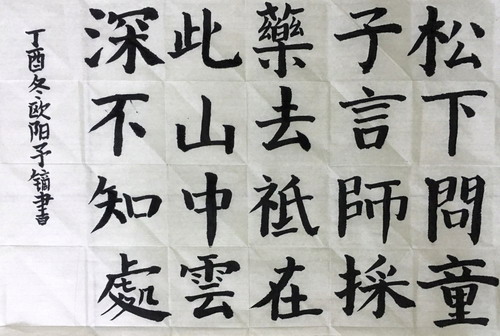 松下問童
子言師採
藥去祗在
此山中雲
深不知處
丁酉冬欧阳予镝書